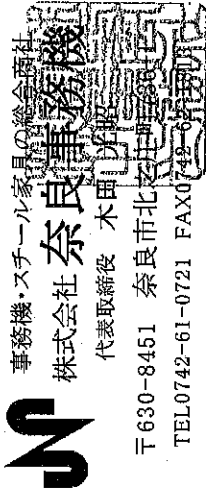 事務機・スチール家具の総合商社
株式会社 奈良事務機
代表取締役 木田
〒630-8451 奈良市北之庄町
TEL0742-61-0721 FAX0742-6